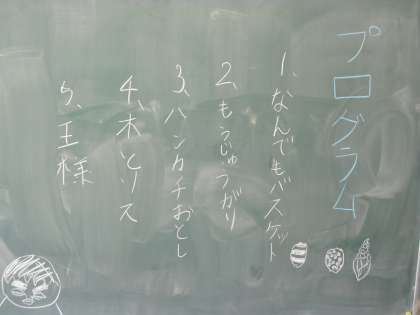 プログラム
1、なんでもバスケット
2、もうじゅうがり
3、ハンカチおとし
4、木とリス
5、王様